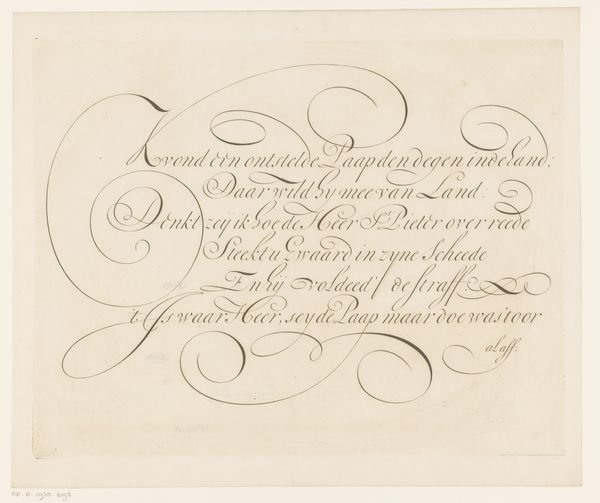 K vond een ontstelde Paap den degen in de hand;
Daar wild hy mee van Land.
Denkt zeij ik hoe de Heer St. Pieter over reede
Steekt u Zwaard in zyne Scheede
En hij voldeed' de straff:
't Is waar, Heer, sey de Paap maar doe was 't oor
al aff.
RP-P-1939-695